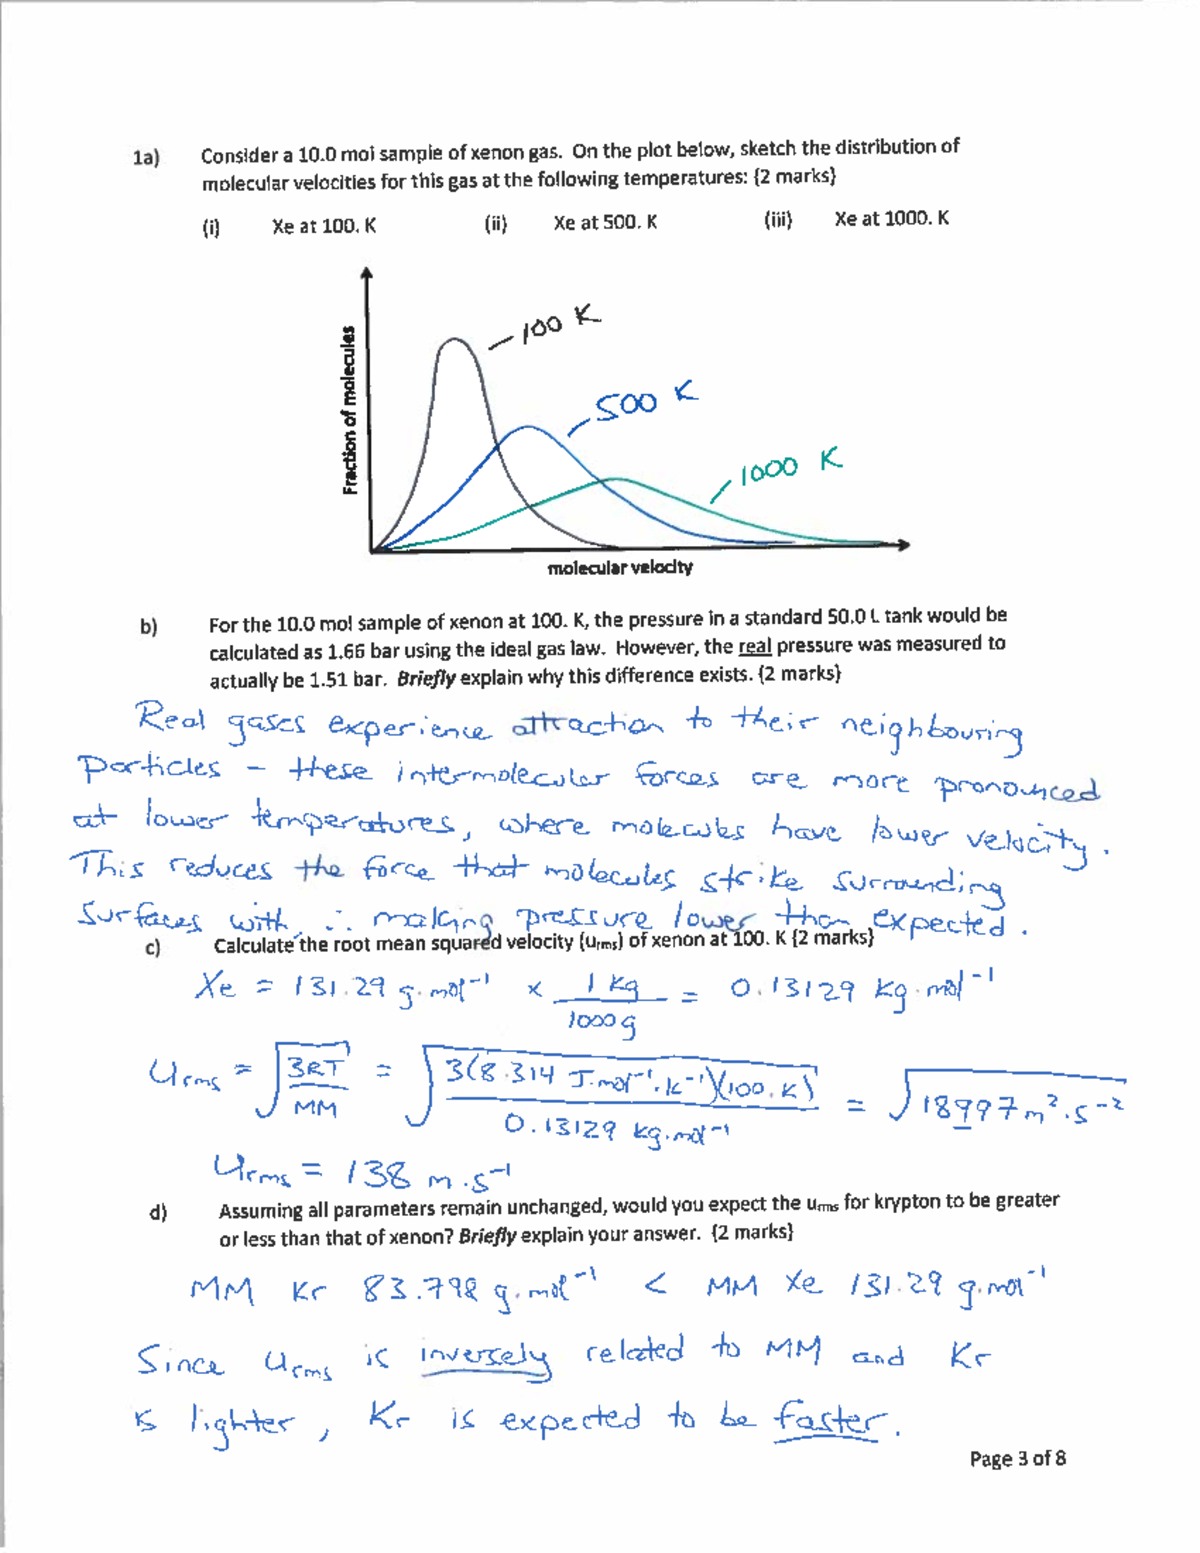 1a) Consider a 10.0 mol sample of xenon gas. On the plot below, sketch the distribution of
molecular velocities for this gas at the following temperatures: {2 marks}
(i) Xe at 100. K (ii) Xe at 500. K (iii) Xe at 1000. K
Fraction of molecules
100 K
500 K
1000 K
molecular velocity
b) For the 10.0 mol sample of xenon at 100. K, the pressure in a standard 50.0 L tank would be
calculated as 1.66 bar using the ideal gas law. However, the real pressure was measured to
actually be 1.51 bar. Briefly explain why this difference exists. {2 marks}
Real gases experience attraction to their neighbouring
particles – these intermolecular forces are more pronounced
at lower temperatures, where molecules have lower velocity.
This reduces the force that molecules strike surrounding
surfaces with, ∴ making pressure lower than expected.
c) Calculate the root mean squared velocity (urms) of xenon at 100. K {2 marks}
Xe = 131.29 g·mol⁻¹ × 1 kg / 1000 g = 0.13129 kg·mol⁻¹
Urms = √(3RT / MM) = √(3(8.314 J·mol⁻¹·K⁻¹)(100. K) / 0.13129 kg·mol⁻¹) = √18997 m²·s⁻²
Urms = 138 m·s⁻¹
d) Assuming all parameters remain unchanged, would you expect the urms for krypton to be greater
or less than that of xenon? Briefly explain your answer. {2 marks}
MM Kr 83.798 g·mol⁻¹ < MM Xe 131.29 g·mol⁻¹
Since Urms is inversely related to MM and Kr
is lighter, Kr is expected to be faster.
Page 3 of 8